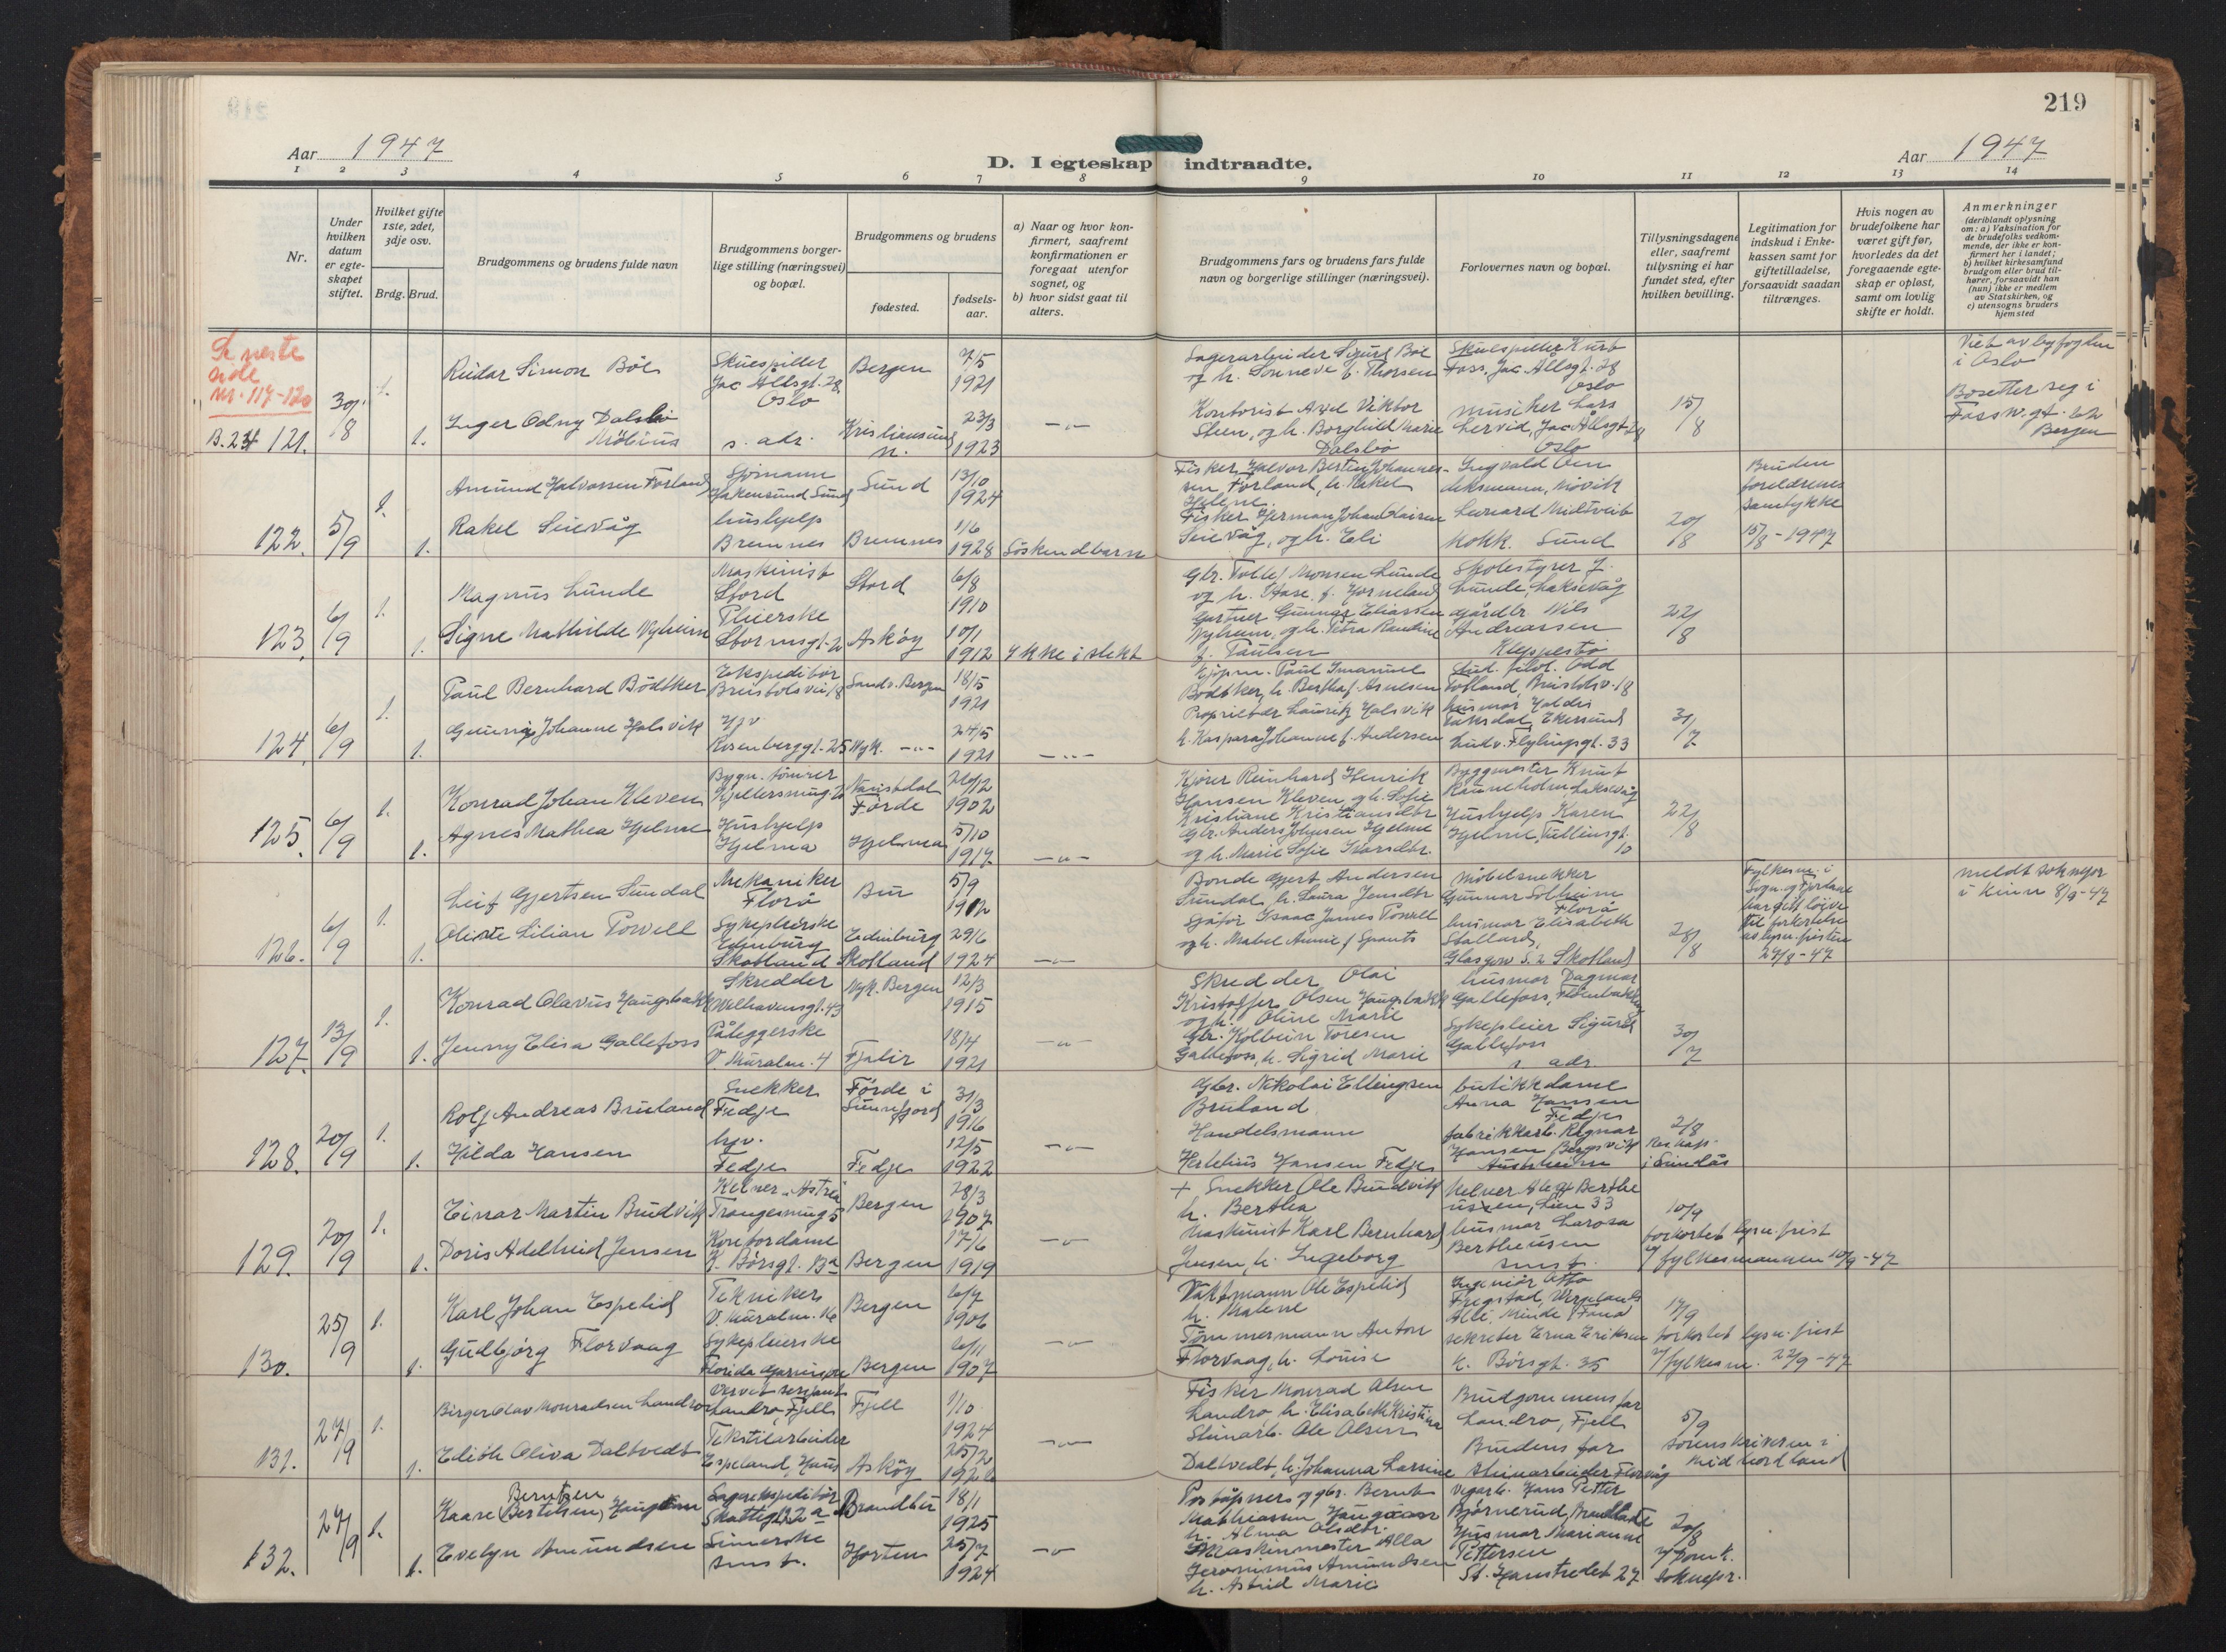 219
Aar 1947
D. I egteskap indtraadte.
Aar 1947
1 2 3 4 5 6 7 8 9 10 11 12 13 14
Nr.
Under hvilken datum er egteskapet stiftet.
Hvilket gifte 1ste, 2det, 3dje osv.
Brdg. Brud.
Brudgommens og brudens fulde navn
Brudgommens borgerlige stilling (næringsvei) og bopæl.
Brudgommens og brudens
fødested.
fødselsaar.
a) Naar og hvor konfirmert, saafremt konfirmationen er foregaat utenfor sognet, og
b) hvor sidst gaat til alters.
Brudgommens fars og brudens fars fulde navn og borgerlige stillinger (næringsvei).
Forlovernes navn og bopæl.
Tillysningsdagene eller, saafremt tillysning ei har fundet sted, efter hvilken bevilling.
Legitimation for indskud i Enkekassen samt for giftetilladelse, forsaavidt saadan tiltrænges.
Hvis nogen av brudefolkene har været gift før, hvorledes da det foregaaende egteskap er opløst, samt om lovlig skifte er holdt.
Anmerkninger
(deriblandt oplysning om: a) Vaksination for de brudefolks vedkommende, der ikke er konfirmert her i landet;
b) hvilket kirkesamfund brudgom eller brud tilhører, forsaavidt han (hun) ikke er medlem av Statskirken, og
c) utensogns bruders hjemsted
Se neste side nr. 117-120
121. 30/8 1. 1.
Reidar Simon Böe
Skuespiller Jac Ållsgt. 28 Oslo
Bergen 7/5 1921
Inger Odny Dalsbö Möbius
s. adr. Kristiansund n. 23/3 1923
Lagerarbeider Sigurd Böe og h. Sonneve f. Thorsen
Kontorist Axel Viktor Steen, og h. Borghild Marie Dalsbö
Skuespiller Kurt Foss, Jac. Ållsgt. 28 Oslo
musiker Lars
Oslo
15/8
Viet av byfogden i Oslo
Bosetter seg i
Bergen
122. 5/9 1. 1.
Amund Halvorsen Forland
Sjömann
Sund 13/10 1924
Rakel Seievåg
hushjelp Bremnes
Bremnes 1/6 1928
Söskendbarn
Fisker Halvor Bertin Johannessen Forland, h. Rakel Helene
Fisker Herman Johan
Seievåg, og h. Eli
Lenard Midtveit
kokk. Sund
20/8
Bruden foreldrenes samtykke 15/8-1947
123. 6/9 1. 1.
Magnus Lunde
Maskinist Stord
Stord 6/8 1910
Signe Mathilde Nyheim
Pleierske Stormsgt. 2
Askøy 10/1 1912
Ikke i slekt
Gbr. Tollef Monsen Lunde og h. Aase f. Horneland
Gartner Gunnar Eliassen Nyheim, og h. Petra Randine f. Paulsen
Skolestyrer J. Lunde, Laksevåg
gårdbr. Nils Andreassen Kleppestö
22/8
124. 6/9 1. 1.
Paul Bernhard Bödtker
Ekspeditör
Sandv. Bergen 18/5 1921
Johanne Halsvik
Hjv Rosenberggt. 25
Nyk. 24/5 1921
Kjöpm. Paul Imanuel Bödtker, h. Bertha f. Arnesen
Proprietær Lauritz Halsvik h. Kaspara Johanne f. Andersen
Stud. filol. Odd Tofland
31/7
125. 6/9 1. 1.
Konrad Johan Kleven
Bygn. tömrer
Naustdal Förde 1902
Agnes Mathea Hjelme
Hushjelp Hjelma
Hjelma 5/10 1917
Kjörer Reinhard Henrik Hansen Kleven og h. Sofie Kristiane Kristiansdtr
Gbr. Anders Johnsen Hjelme og h. Marie Sofie
Byggmester Knut Rauneholm Laksevåg
Hushjelp Karen Hjelme, Tullinsgt. 10
22/8
126. 6/9 1. 1.
Leif Gjertsen Sundal
Mekaniker Florö
Bru 5/9 1912
Olivie Lilian Powell
Sykepleierske Edinburg Skotland
Edinburg Skotland 29/6 1924
Bonde Gjert Andersen Sundal, h. Laura Jensdtr
Sjåför Isaac James Powell og h. Mabel Annie f. Spants
Möbelsnekker Gunnar Solheim Florö
husmor Elisabeth Stallard, Glasgow S. 2 Skotland
28/8
Fylkesm. i Sogn og Fjordane har gitt löyve til forkortelse av lysn. fristen 27/8-47
meldt soknepr i Kinn 8/9-47
127. 13/9 1. 1.
Konrad Olavus Haugsbakk
Skredder Welhavensgt. 43
Nyk. Bergen 12/3 1915
Jenny Elisa Gallefoss
Påleggerske V. Muralm. 4
Fjalir 18/4 1921
Skredder Olai Kristoffer Olsen Haugsbakk og h. Oline Marie
Gbr. Kolbein Toresen Gallefoss, h. Sigrid Marie
husmor Dagmar Gallefoss,
Sykepleier Sigurd Gallefoss s. adr.
30/7
128. 20/9 1. 1.
Rolf Andreas Bruland
Snekker Fedje
Förde i Sunnfjord 31/3 1916
Hilda Hansen
hjv. Fedje
Fedje 12/5 1922
Gbr. Nikolai Ellingsen Bruland
Handelsmann Hertelius Hansen Fedje
butikkdame Anna Hansen Fedje
fabrikkarb. Ragnar Hansen Bergsvik Austrheim
2/8 Res. kap. i Lindås
129. 20/9 1. 1.
Einar Martin Brudvik
Kelner "Astria
Bergen 28/3 1907
Doris Adelheid Jensen
Kontordame K. Börsgt. 13a
Bergen 17/6 1919
+ Snekker Ole Brudvik h. Bertha
Maskinist Karl Bernhard Jensen, h. Ingeborg
Kelner Alf Bertheussen, Lien 33
husmor Larosa Bertheusen smst.
10/9 forkortet lysn. frist v/ fylkesmannen 10/9-47
130. 25/9 1. 1.
Karl Johan Espelid
Tekniker V. Muralm. 16
Bergen 6/7 1906
Gudbjörg Florvaag
Sykepleierske
Bergen 6/11 1907
Vaktmann Ole Espelid h. Malene
Tömmermann Anton Florvaag, h. Louise
Ingeniör Otto
sekretær Erna Eriksen K. Börsgt. 35
17/9 forkortet lysn. frist v/ fylkesm. 22/9-47
131. 27/9 1. 1.
Birger Olav Monradsen Landro
Vervet sersjant Landro, Fjell
Fjell 1/10 1924
Edith Oliva Daltvedt
Tekstilarbeider Espeland, Haus
Askøy 25/2
Fisker Monrad Olsen Landro, h. Elisabeth Kristina
Steinarb. Ole Olsen Daltvedt, h. Johanna Larsine
Brudgommens far Landro, Fjell
Brudens far steinarbeider Florvåg
5/9 sorenskriveren i Midhordland
132. 27/9 1. 1.
Kaare (Bertelsen) Berntsen
Lagerekspeditör
Brandbu 18/1 1925
Evelyn Amundsen
smst.
Horten 25/7 1924
Poståpner og gbr. Bernt Mathiassen
h. Alma Olsdtr.
Maskinmester Alla Jeronimus Amundsen h. Astrid Marie
Vegarb. Hans Petter Björnerud,
Husmor Marianne Pettersen St. Hanstredet 27
20/8
soknepr.